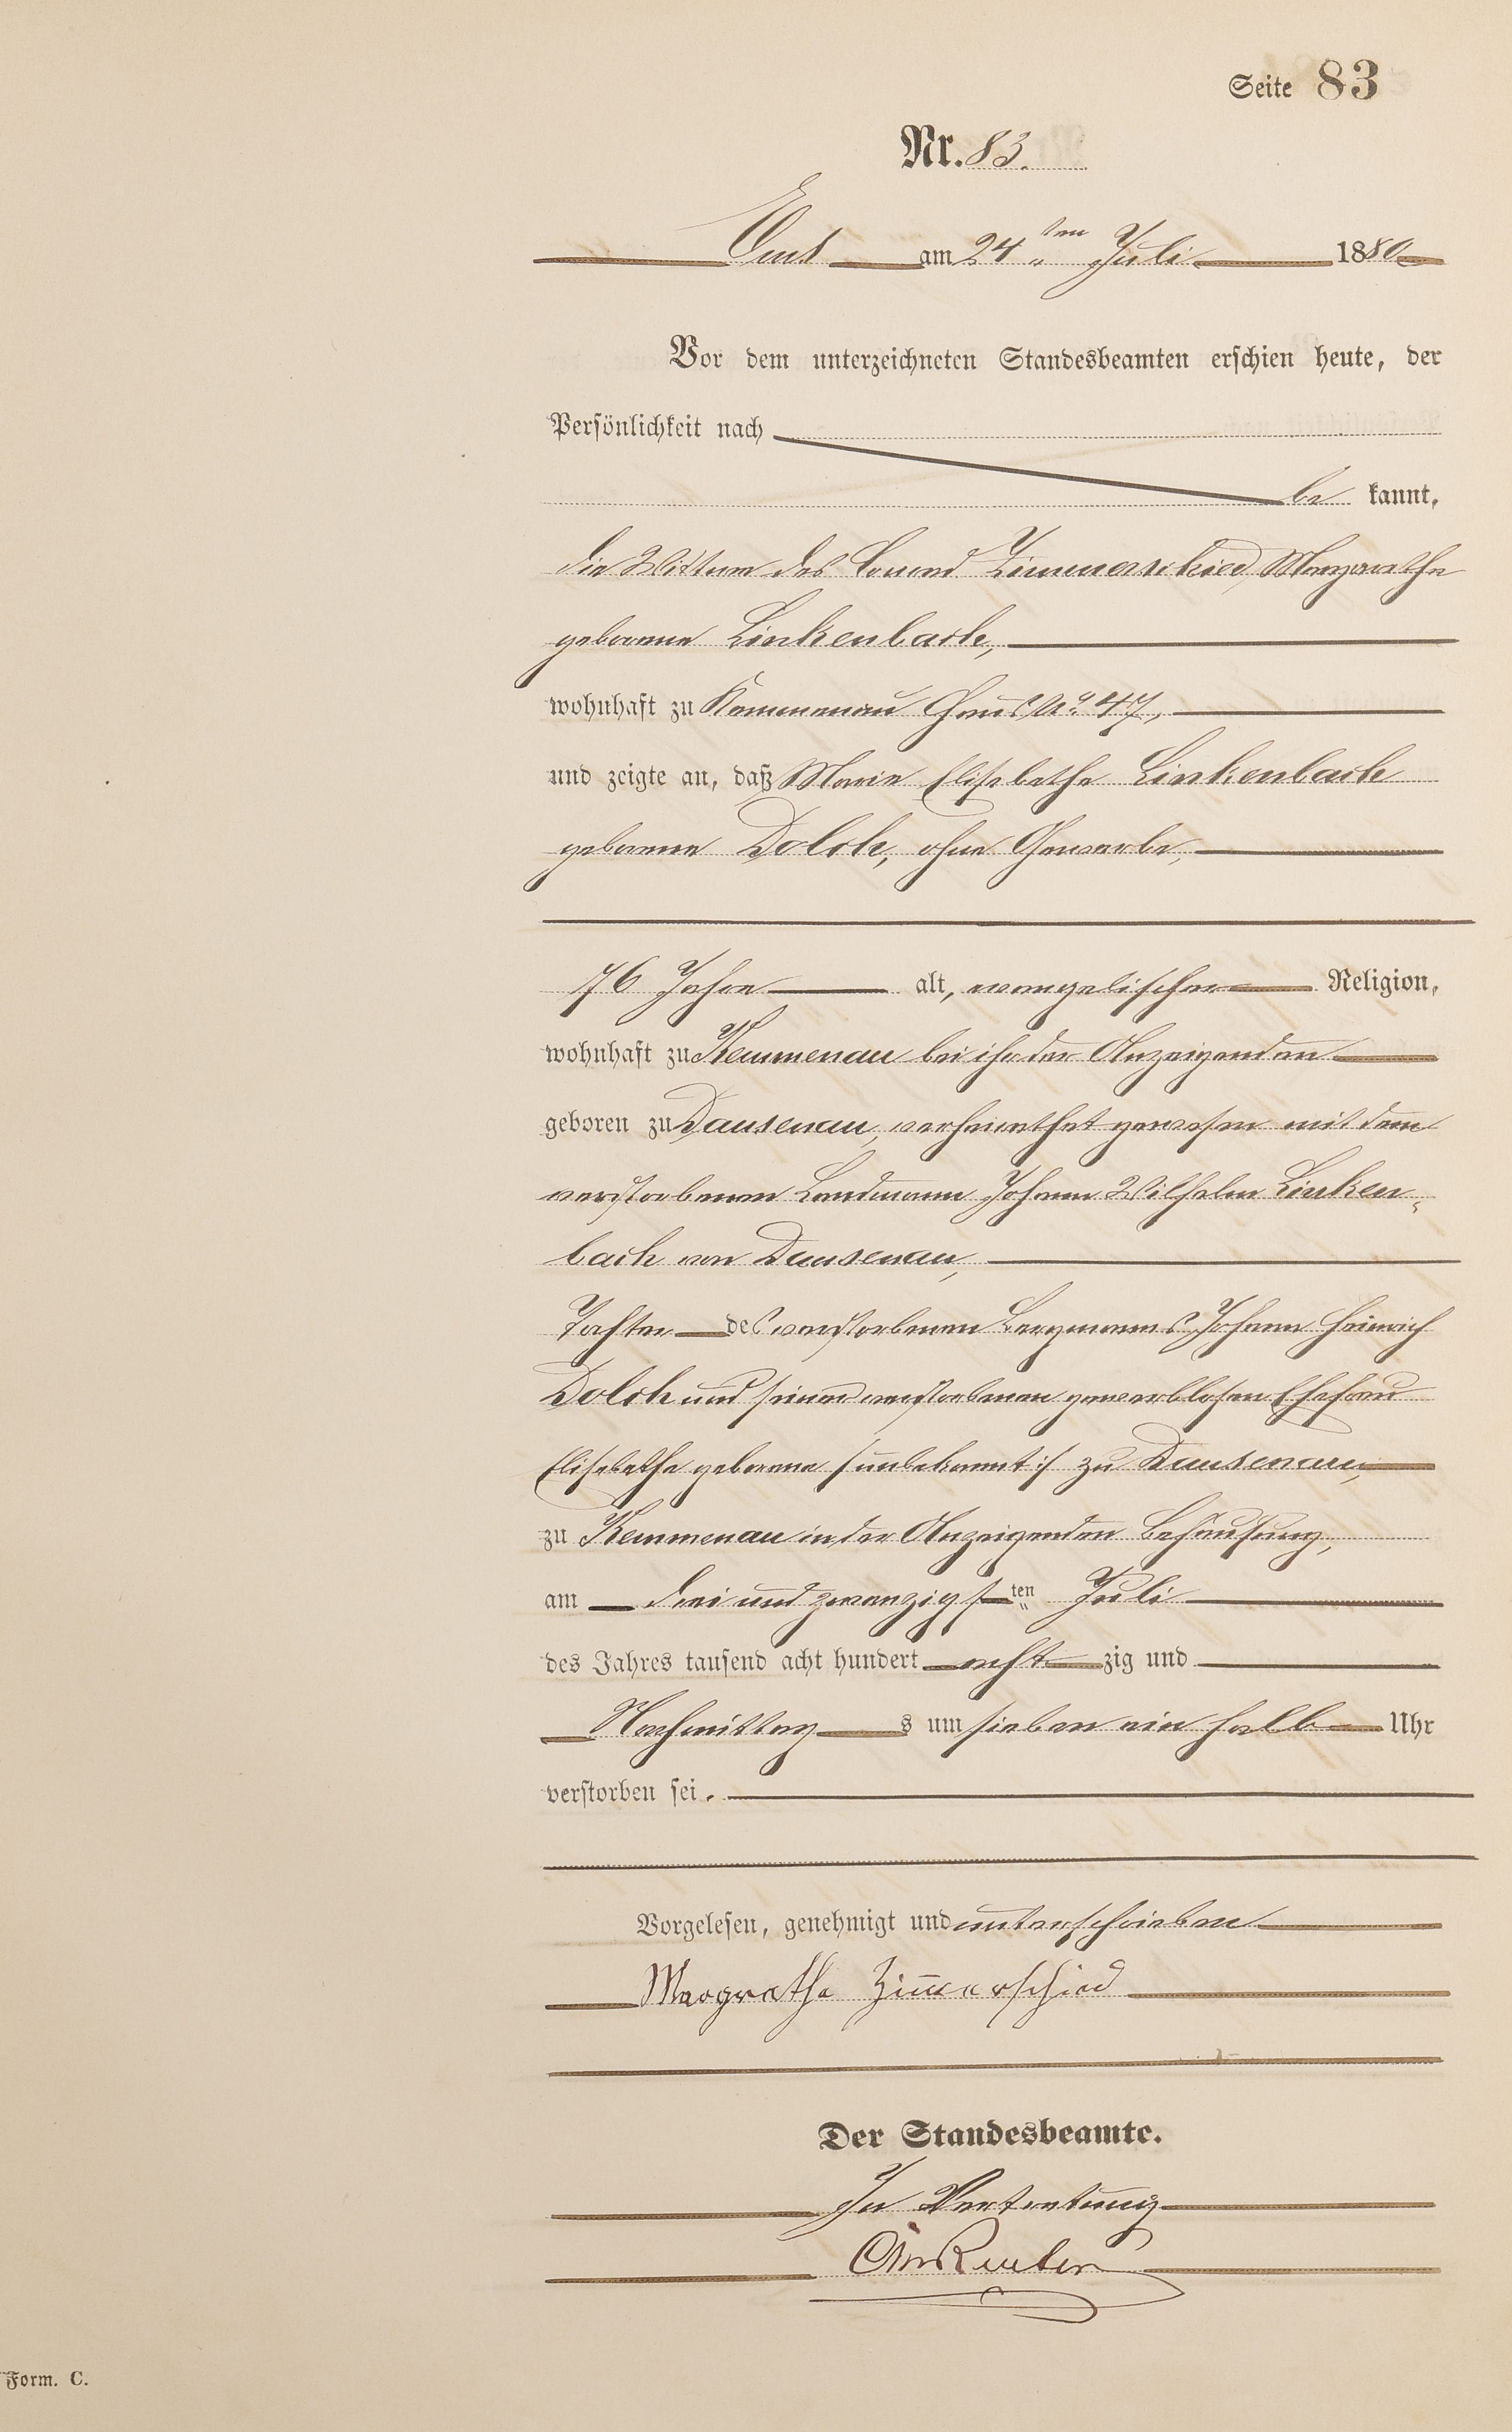 Seite 83
Nr. 83.
Ems am 24ten Juli 1880
Vor dem unterzeichneten Standesbeamten erschien heute, der
Persönlichkeit nach
be kannt,
die Wittwe des Conrad Zimmerschied, Margarethe
geborene Linkenbach,
wohnhaft zu Kemmenau Haus No. 47,
und zeigte an, daß Marie Elisabethe Linkenbach
geborene Dolch, ohne Gewerbe,
76 Jahre alt, evangelischer Religion,
wohnhaft zu Kemmenau bei ihr der Anzeigenden
geboren zu Dausenau, verheirathet gewesen mit dem
verstorbenen Landmann Johann Wilhelm Linken-
bach von Dausenau,
Tochter des verstorbenen Bergmanns Johann Heinrich
Dolch und seiner verstorbenen gewerblosen Ehefrau
Elisabethe geborene /:unbekannt:/ zu Dausenau,
zu Kemmenau in der Anzeigenden Behausung,
am drei und zwanzigsten Juli
des Jahres tausend acht hundert acht zig und
Nachmittag s um sieben ein halb Uhr
verstorben sei.
Vorgelesen, genehmigt und unterschrieben
Margrethe Zimmerschied
Der Standesbeamte.
In Vertretung
Reuter
Form. C.